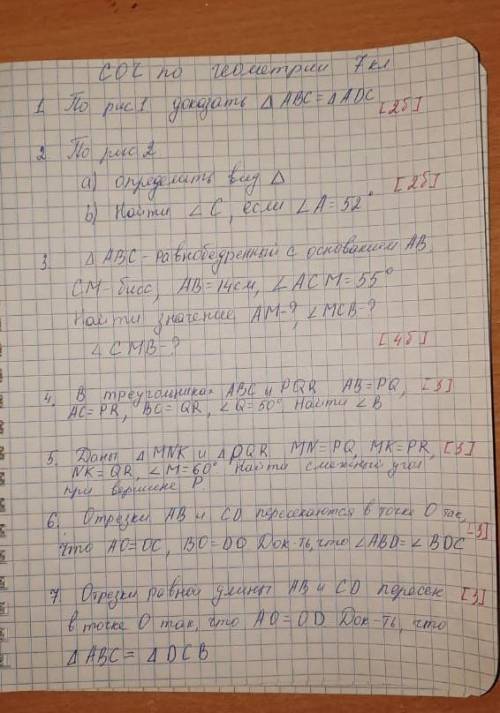 СОЧ по геометрии 7кл
1 По рис.1 доказать △ ABC = △ ADC [2б]
2 По рис 2
a) определить вид △
b) Найти ∠C, если ∠A = 52° [2б]
3. △ABC - равнобедренный с основанием AB,
CM - бисс, AB = 14см, ∠ACM = 55°
Найти значение AM-?, ∠MCB-?
∠CMB-? [4б]
4. В треугольниках ABC и PQR AB = PQ, [3]
AC = PR, BC = QR, ∠Q = 50° Найти ∠B
5. Даны △MNK и △PQR MN = PQ, MK = PR, [3]
NK = QR, ∠M = 60° Найти смежный угол
при вершине P.
6. Отрезки AB и CD пересекаются в точке O так, [3]
что AO = OC, BO = DO Док-ть, что ∠ABD = ∠BDC
7 Отрезки равной длины AB и CD пересек [3]
в точке O так, что AO = OD Док-ть, что
△ABC = △DCB